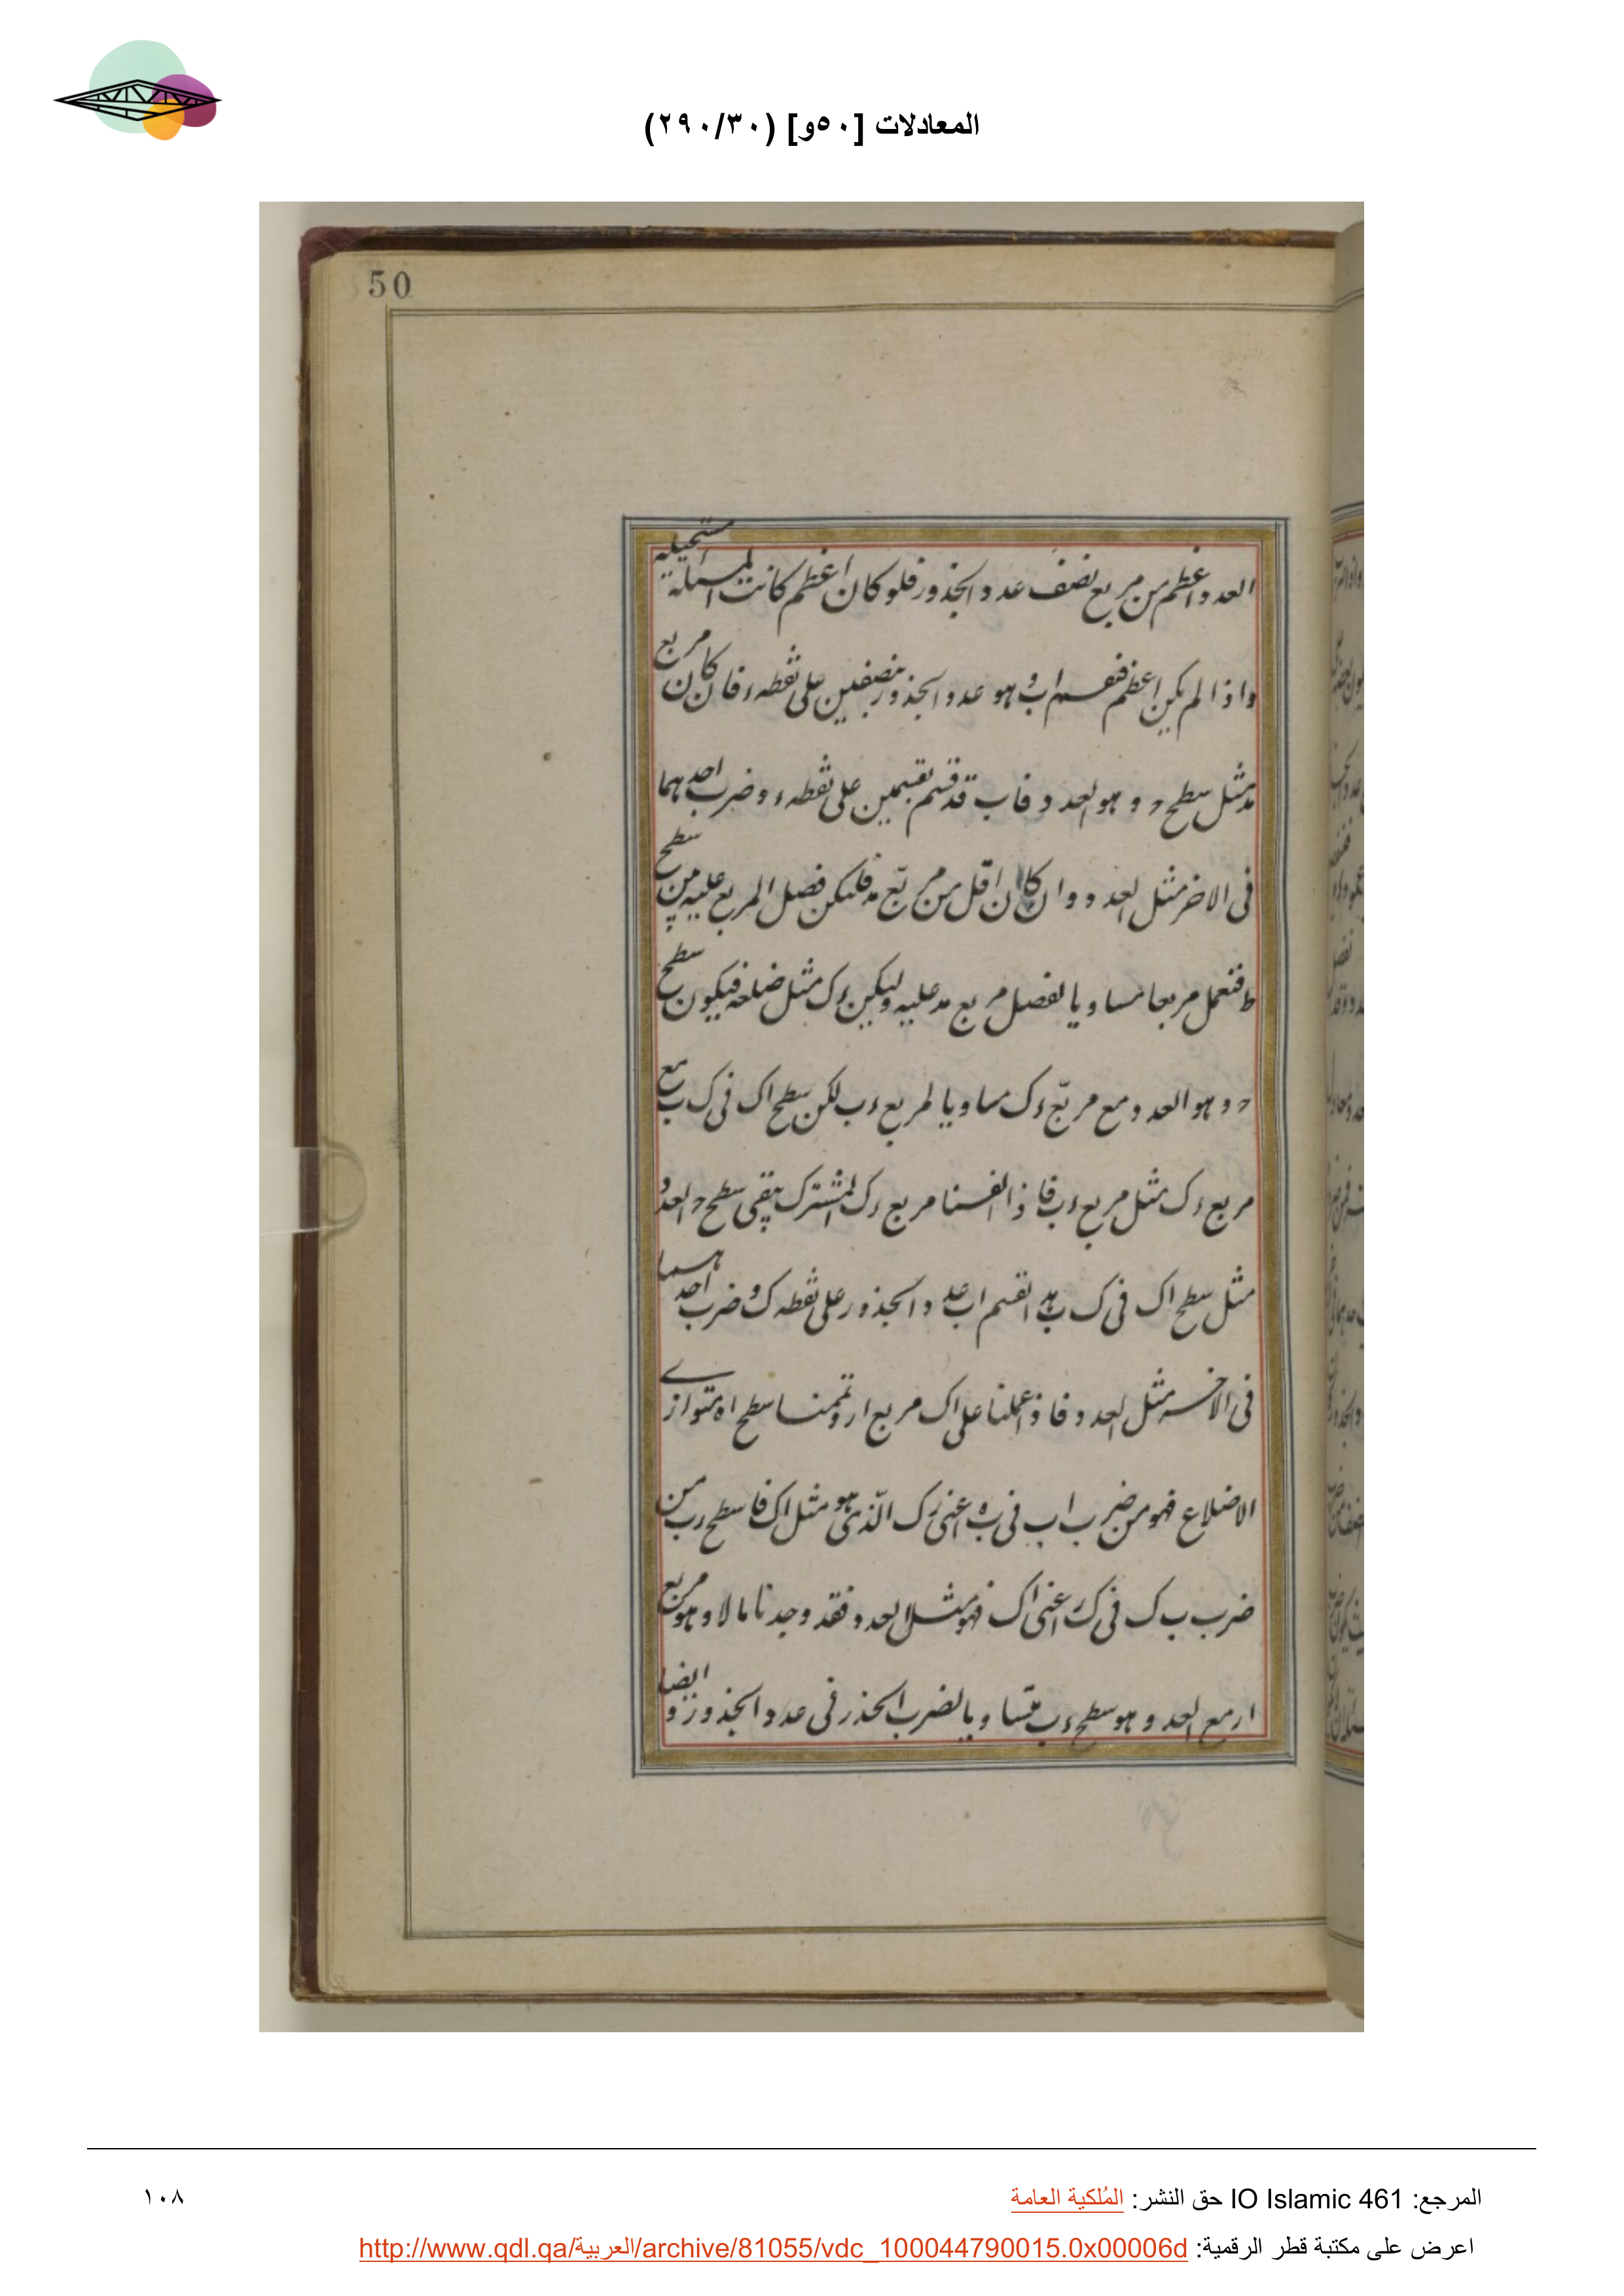 المعادلات [٥٠و] (٢٩٠/٣٠)
50
العدد اعظم من مربع نصف عدد الجذور فلو كان اعظم كانت المسئلة مستحيلة
واذا لم يكن اعظم فنقسم اب و هو عدد الجذور بنصفين على نقطه ء فان كان مربع
مد مثل سطح ح و وهو العدد فاب قد قسم بقسمين على نقطه ء وضرب احدهما
فى الاخر مثل العدد وان كان اقل من مربع مد فليكن فضل المربع عليه من سطح
ط فنعمل مربعا مساويا لفضل مربع مد عليه وليكن ءك مثل ضلعه فيكون سطح
ح و وهو العدد مع مربع ءك مساويا لمربع ءب لكن سطح اك فى ك ب مع
مربع ءك مثل مربع ءب فاذا القينا مربع ءك المشترك يبقى سطح ح و العدد
مثل سطح اك فى ك ب انقسم اب عدد الجذور على نقطه ك وضرب احدهما
فى الاخر مثل العدد فاذا عملنا على اك مربع ار وتممنا سطح اه متوازى
الاضلاع فهو من ضرب اب فى ب ه اعنى رك الذى هو مثل اك فاسطح رب من
ضرب ب ك فى ك ر اعنى اك فهو مثل العدد فقد وجدنا مالا وهو مربع
ار مع العدد وهو سطح ءب متساويا لضرب الجذر فى عدد الجذور و ايضا
المرجع: IO Islamic 461 حق النشر: المُلكية العامة
١٠٨
اعرض على مكتبة قطر الرقمية: http://www.qdl.qa/العربية/archive/81055/vdc_100044790015.0x00006d